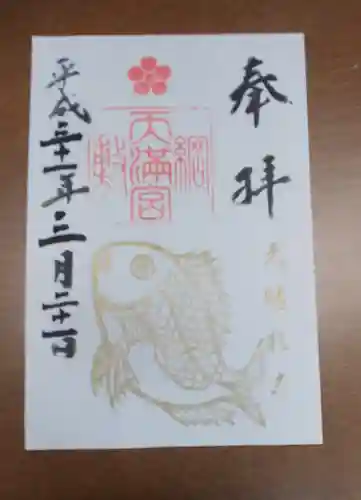 奉拝
綱敷天満宮
平成三十一年三月二十一日